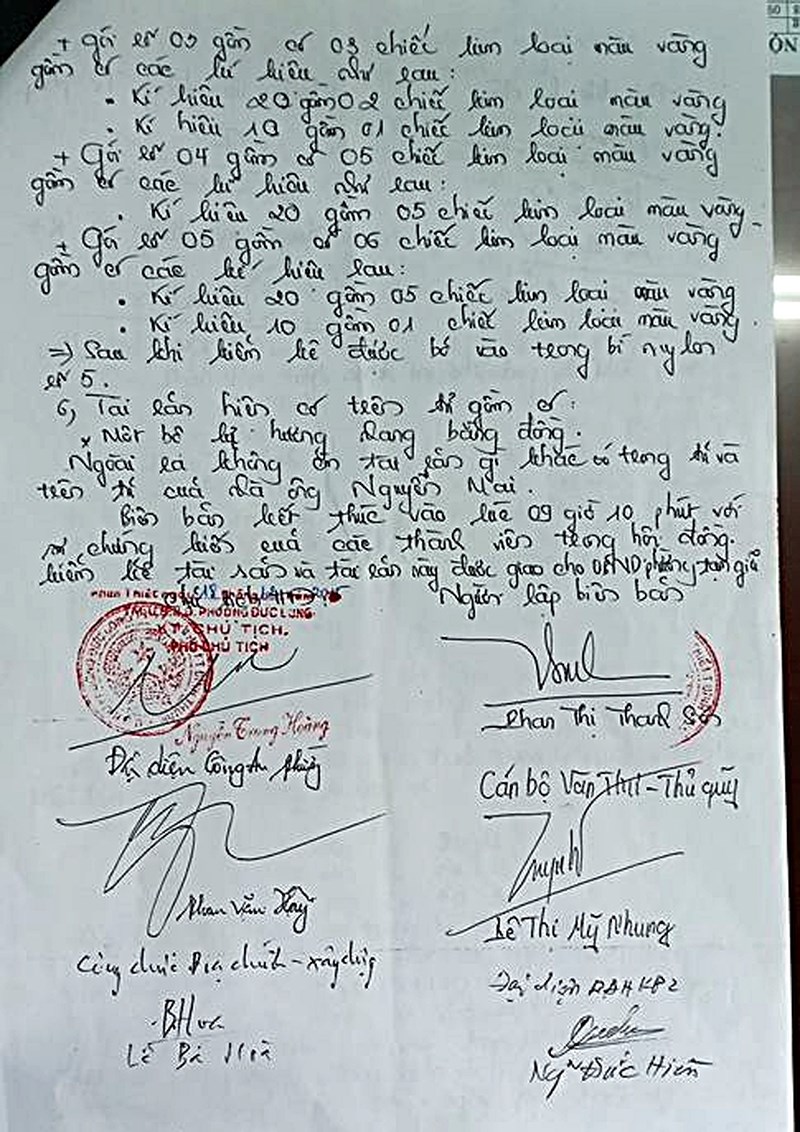 + Gói số 03 gồm có 03 chiếc kim loại màu vàng
gồm có các kí hiệu như sau:
• Kí hiệu 20 gồm 02 chiếc kim loại màu vàng
• Kí hiệu 10 gồm 01 chiếc kim loại màu vàng.
+ Gói số 04 gồm có 05 chiếc kim loại màu vàng
gồm có các kí hiệu như sau:
• Kí hiệu 20 gồm 05 chiếc kim loại màu vàng.
+ Gói số 05 gồm có 06 chiếc kim loại màu vàng
gồm có các kí hiệu sau:
• Kí hiệu 20 gồm 05 chiếc kim loại màu vàng
• Kí hiệu 10 gồm 01 chiếc kim loại màu vàng.
=> Sau khi kiểm kê được bỏ vào trong bì nylon
số 5.
6, Tài sản hiện có trên tủ gồm có:
x Một bộ lư hương đang bằng đồng.
Ngoài ra không còn tài sản gì khác có trong tủ và
trên tủ của nhà ông Nguyễn Mai.
Biên bản kết thúc vào lúc 09 giờ 10 phút với
sự chứng kiến của các thành viên trong hội đồng
kiểm kê tài sản và tài sản này được giao cho UBND phường tạm giữ
Người lập biên bản
TM. U.B.N.D. PHƯỜNG ĐỨC LONG
KT. CHỦ TỊCH.
PHÓ CHỦ TỊCH
Nguyễn Trung Hoàng
Phan Thị Thanh
Đại diện Công An phường
Cán bộ Văn Thư - Thủ quỹ
Phan Văn
Lê Thị Mỹ Nhung
Công chức Địa chính - xây dựng
Đại diện BĐH KP2
Lê Bá Hoà
Ngũ Đức Hiền